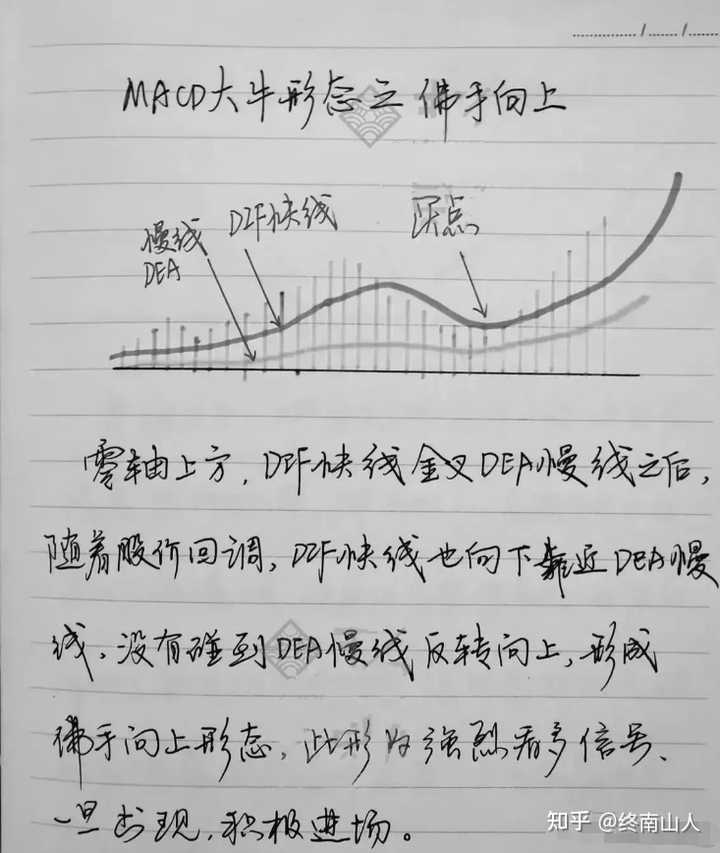 MACD大牛形态之佛手向上
慢线
DEA
DIF快线
买点
零轴上方,DIF快线金叉DEA慢线之后,
随着股价回调,DIF快线也向下靠近DEA慢
线,没有碰到DEA慢线反转向上,形成
佛手向上形态,此形为强烈看多信号、
一旦出现,积极进场。
知乎 @终南山人